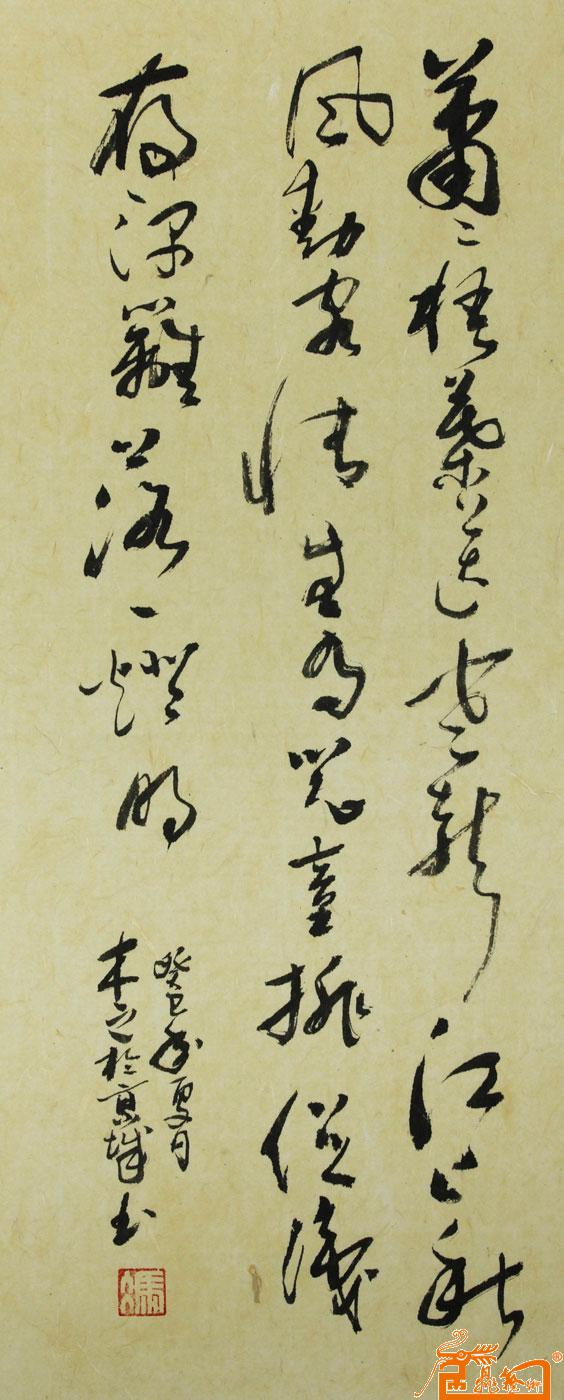 蕭〻梧葉送寒聲江上秋
風動客情知有兒童挑促織
夜深籬落一燈明
癸巳年夏日
木之於京城書